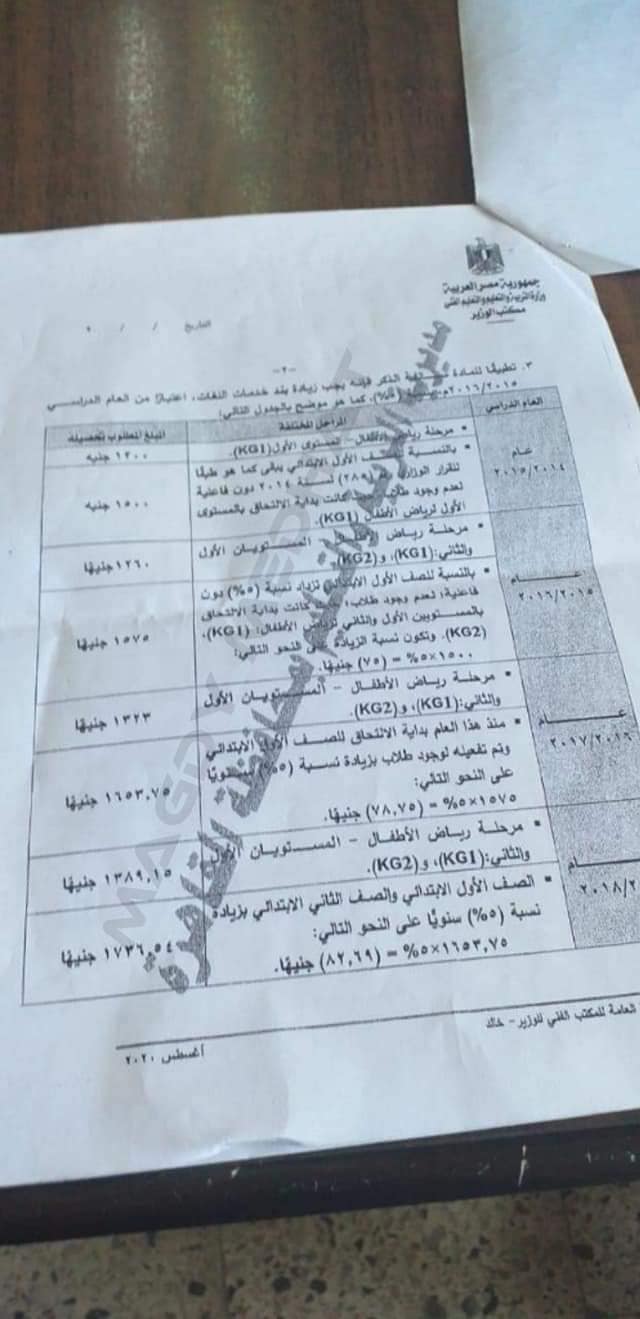 جمهورية مصر العربية
وزارة التربية والتعليم والتعليم الفني
مكتب الوزير
التاريخ / / ٢٠
-٢-
٣. تطبيقًا للمادة الذكر فإنه يجب زيادة بند خدمات اللغات، اعتبارًا من العام الدراسي
٢٠١٦/٢٠١٥م، (٥%)، كما هو موضح بالجدول التالي:
العام الدراسي
المراحل المختلفة
المبلغ المطلوب تحصيله
عام
٢٠١٥/٢٠١٤
• مرحلة رياض الأطفال – المستوى الأول (KG1).
١٢٠٠ جنيه
• بالنسبة للصف الأول الابتدائي يبقى كما هو طبقًا
للقرار الوزاري رقم (٢٨٥) لسنة ٢٠١٤ دون فاعلية
لعدم وجود طلاب، كانت بداية الالتحاق بالمستوى
الأول لرياض الأطفال (KG1).
١٥٠٠ جنيه
عام
٢٠١٦/٢٠١٥
• مرحلة رياض الأطفال – المستويان الأول
والثاني: (KG1)، و(KG2).
١٢٦٠ جنيهًا
• بالنسبة للصف الأول الابتدائي تزاد نسبة (٥%) دون
فاعلية؛ لعدم وجود طلاب، كانت بداية الالتحاق
بالمستويين الأول والثاني لرياض الأطفال: (KG1)،
(KG2). وتكون نسبة الزيادة على النحو التالي:
١٥٠٠×٥% = (٧٥) جنيهًا.
١٥٧٥ جنيهًا
عام
٢٠١٧/٢٠١٦
• مرحلة رياض الأطفال – المستويان الأول
والثاني: (KG1)، و(KG2).
١٣٢٣ جنيهًا
• منذ هذا العام بداية الالتحاق للصف الأول الابتدائي
وتم تفعيله لوجود طلاب بزيادة نسبة (٥%) سنويًا
على النحو التالي:
١٥٧٥×٥% = (٧٨,٧٥) جنيهًا.
١٦٥٣,٧٥ جنيهًا
عام
٢٠١٨/٢
• مرحلة رياض الأطفال – المستويان الأول
والثاني: (KG1)، و(KG2).
١٣٨٩,١٥ جنيهًا
• الصف الأول الابتدائي والصف الثاني الابتدائي بزيادة
نسبة (٥%) سنويًا على النحو التالي:
١٦٥٣,٧٥×٥% = (٨٢,٦٩) جنيهًا.
١٧٣٦,٥٤ جنيهًا
العامة للمكتب الفني للوزير- خالد
أغسطس ٢٠٢٠
مديرية التربية والتعليم بمحافظة القاهرة
MAGDY